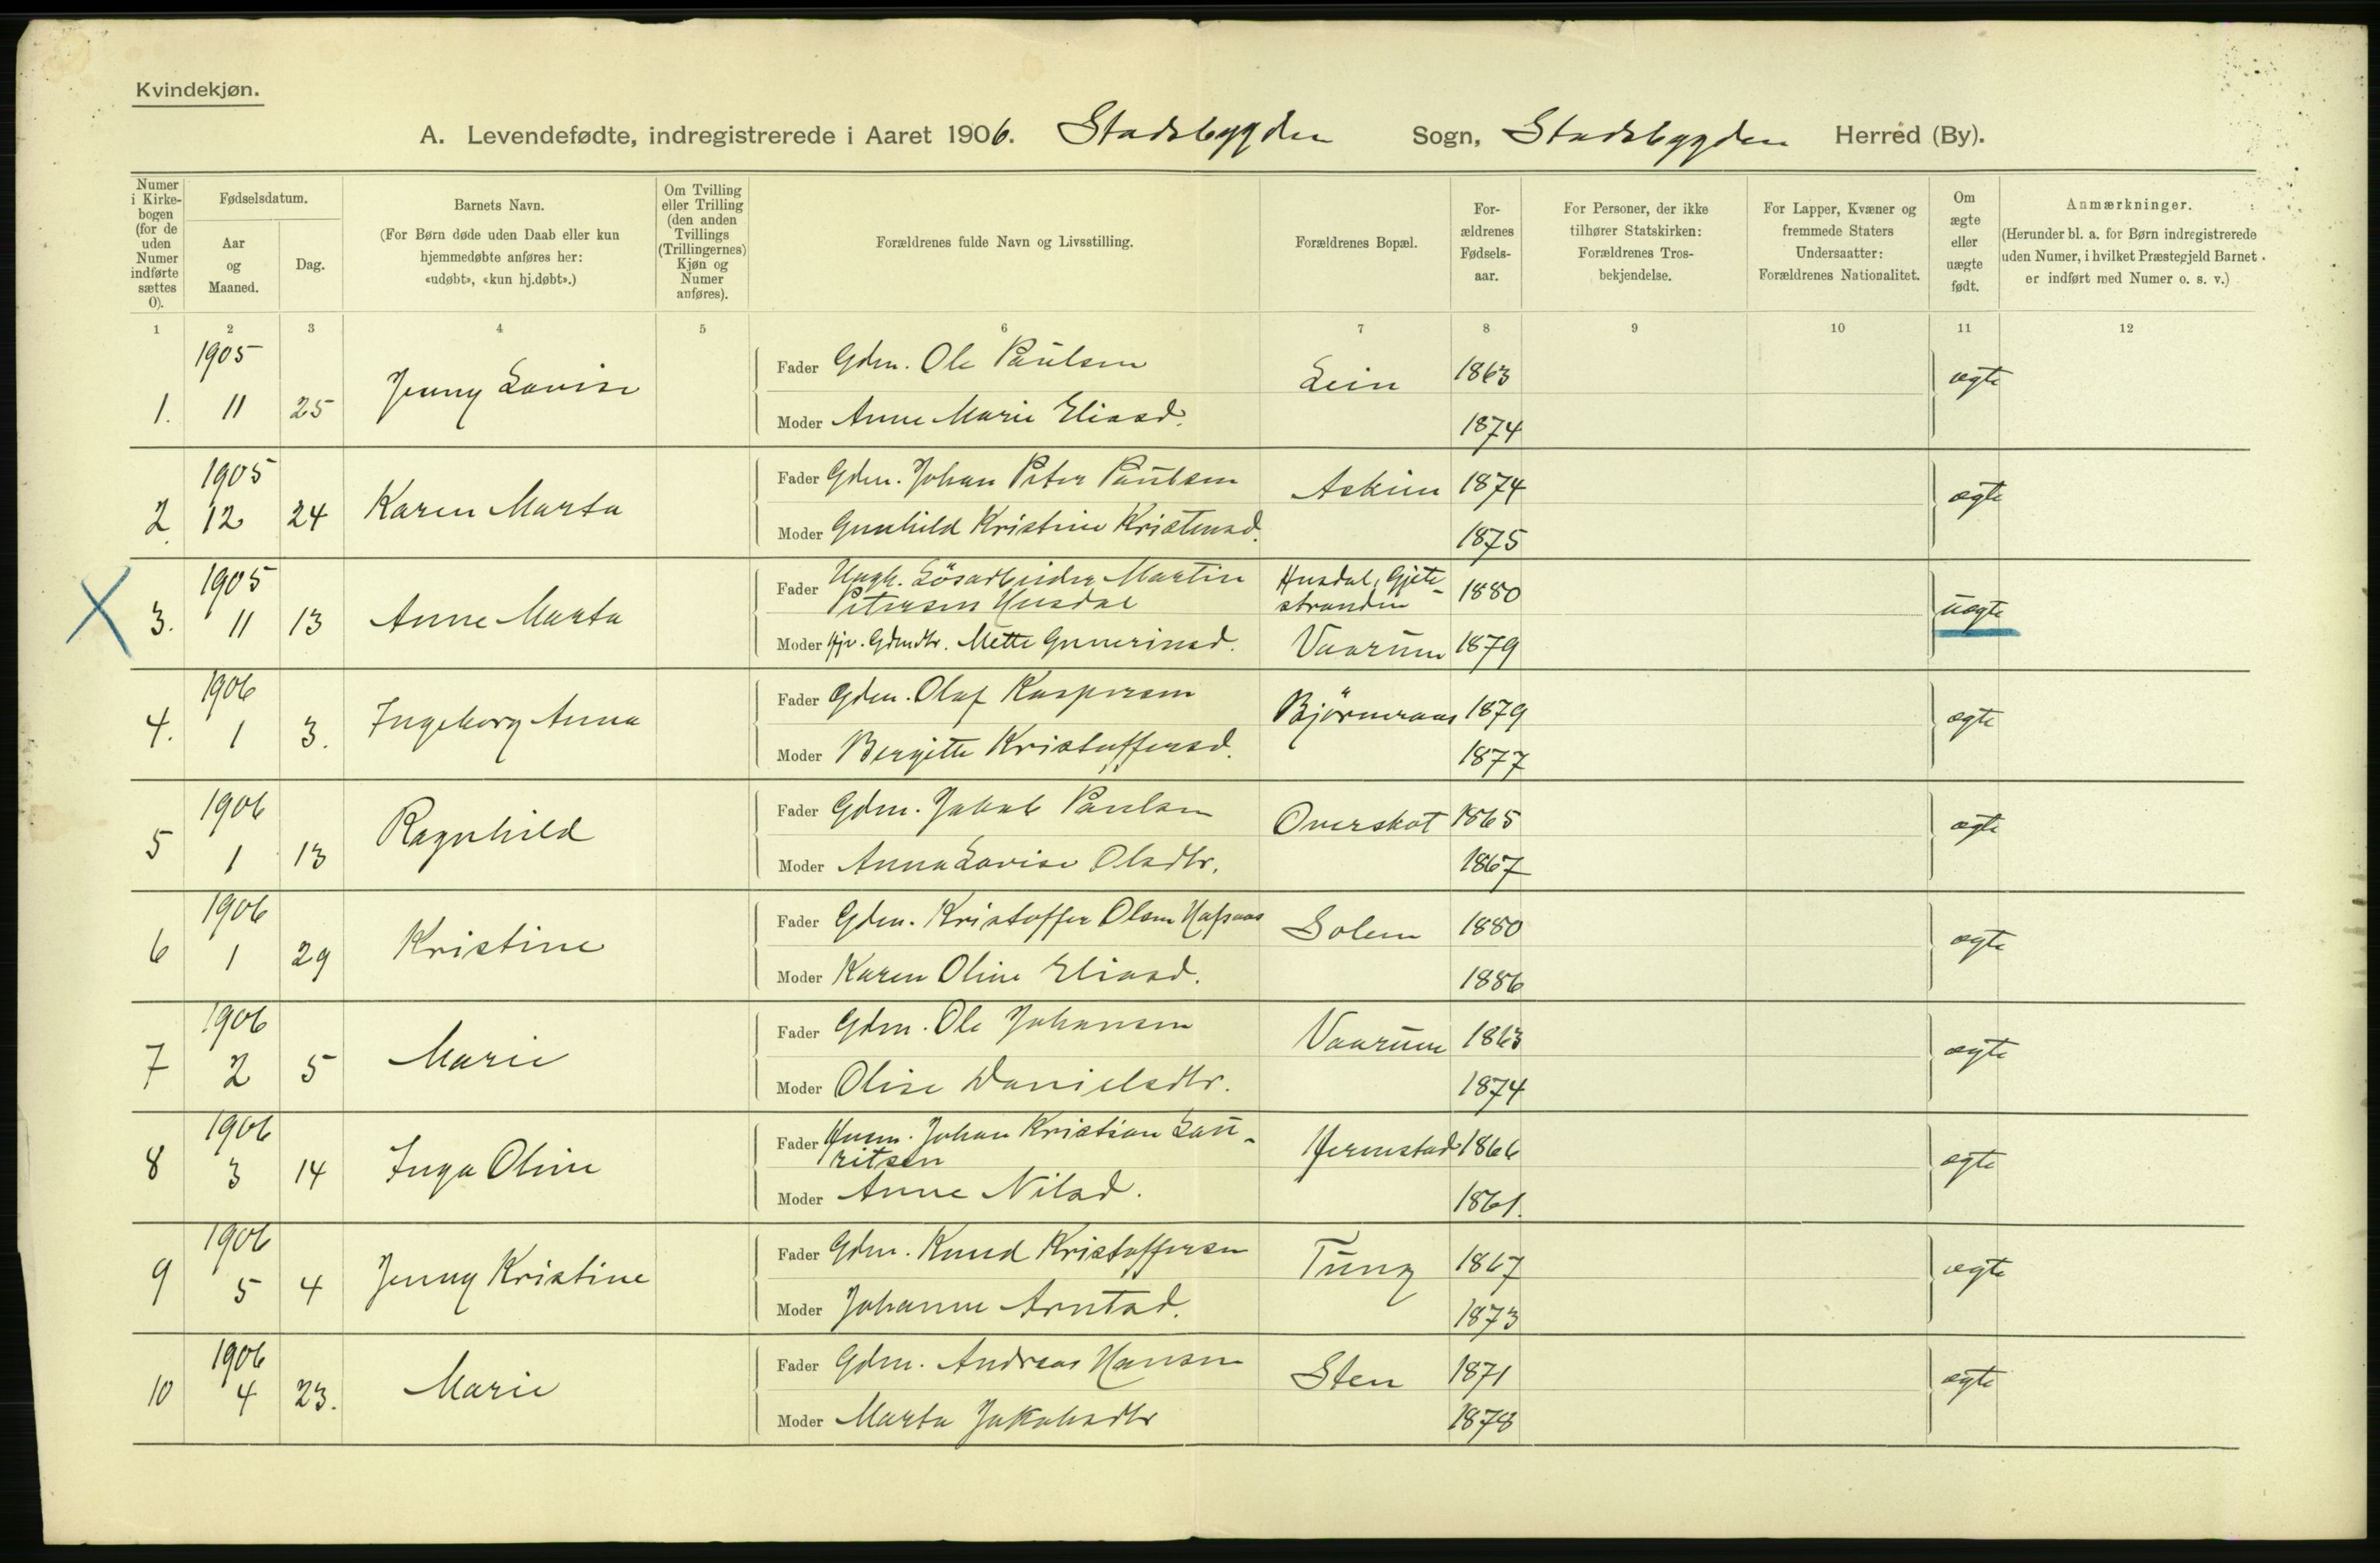 Kvindekjøn.
A. Levendefødte, indregistrerede i Aaret 1906. Stadsbygden Sogn, Stadsbygden Herred (By).
Numer i Kirkebogen (for de uden Numer indførte sættes 0).
Fødselsdatum.
Aar og Maaned.
Dag.
Barnets Navn.
(For Børn døde uden Daab eller kun
hjemmedøbte anføres her:
«udøbt», «kun hj.døbt».)
Om Tvilling
eller Trilling
(den anden
Tvillings
(Trillingernes)
Kjøn og
Numer
anføres).
Forældrenes fulde Navn og Livsstilling.
Forældrenes Bopæl.
For-
ældrenes
Fødsels-
aar.
For Personer, der ikke
tilhører Statskirken:
Forældrenes Tros-
bekjendelse.
For Lapper, Kvæner og
fremmede Staters
Undersaatter:
Forældrenes Nationalitet.
Om
ægte
eller
uægte
født.
Anmærkninger.
(Herunder bl. a. for Børn indregistrerede
uden Numer, i hvilket Præstegjeld Barnet
er indført med Numer o. s. v.)
1 2 3 4 5 6 7 8 9 10 11 12
1905
1. 11 25 Jenny Lovise
Fader Gdm. Ole Paulsen Lein 1863 ægte
Moder Anne Marie Eliasd. 1874
1905
2. 12 24 Karen Marta
Fader Gdm. Johan Peter Paulsen Askim 1874 ægte
Moder Gunhild Kristine Kristensd. 1875
1905
3. 11 13 Anne Marta
Fader Ungk. Løsarbeider Martin Petersen Husdal Husdal, Gjetestranden 1880 uægte
Moder Pige. Gdmdtr. Mette Gunerinsd. Vaarum 1879
1906
4. 1 3. Ingeborg Anna
Fader Gdm. Olaf Kaspersen Björneraas 1879 ægte
Moder Bergitte Kristoffersd. 1877
1906
5 1 13 Ragnhild
Fader Gdm. Jakob Paulsen Overskot 1865 ægte
Moder Anna Lovise Olsdtr. 1867
1906
6 1 29 Kristine
Fader Gdm. Kristoffer Olsen Hafsaas Solem 1880 ægte
Moder Karen Oline Eliasd. 1886
1906
7 2 5 Marie
Fader Gdm. Ole Johansen Vaarum 1863 ægte
Moder Olise Danielsdtr. 1874
1906
8 3 14 Inga Oline
Fader Husm. Johan Kristian Lauritsen Hermstad 1866 ægte
Moder Anne Nilsd. 1861.
1906
9 5 4 Jenny Kristine
Fader Gdm. Knud Kristoffersen Tung 1867 ægte
Moder Johanne Arntsd. 1873
1906
10 4 23. Marie
Fader Gdm. Andreas Hansen Sten 1871 ægte
Moder Marta Jakobsdtr 1878